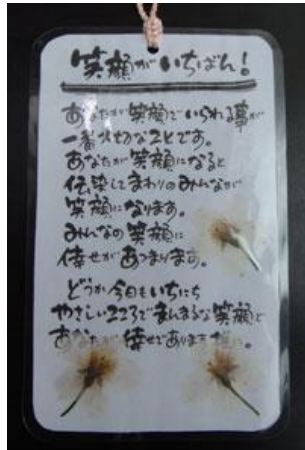 笑顔がいちばん!
あなたが笑顔でいられる事が
一番大切なことです。
あなたが笑顔になると
伝染してまわりのみんなが
笑顔になります。
みんなの笑顔に
倖せがあつまります。
どうか今日もいちにち
やさしいこころでまんまるな笑顔と
あなたが倖せであります様に。